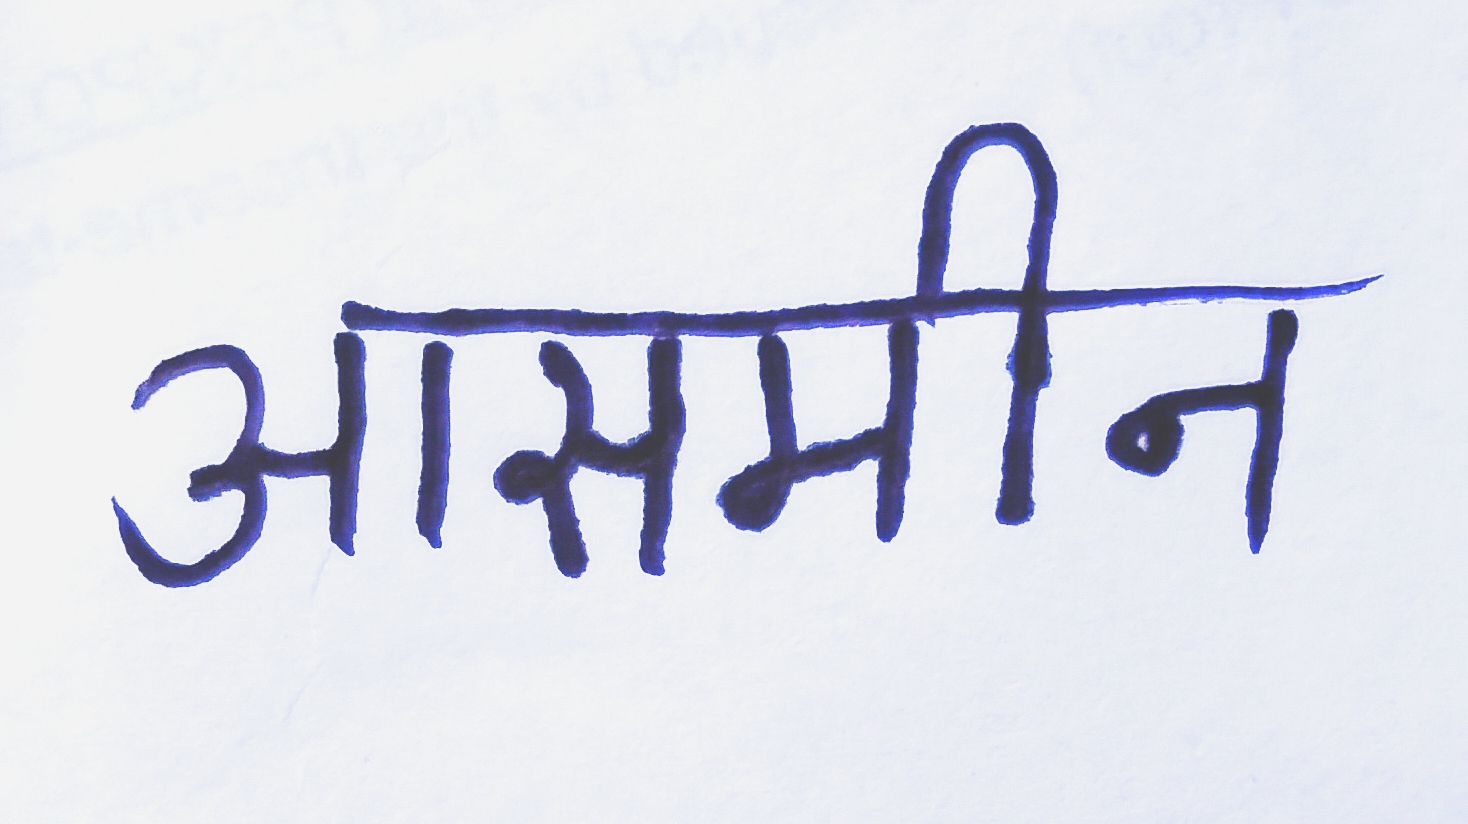 आसमीन